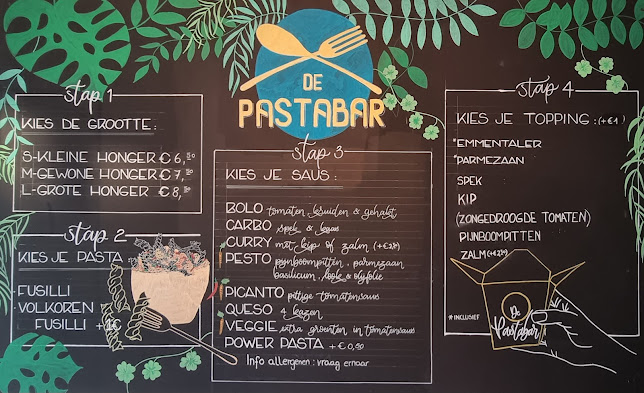 DE
PASTABAR
stap 1
KIES DE GROOTTE:
S-KLEINE HONGER € 6,50
M-GEWONE HONGER € 7,50
L-GROTE HONGER € 8,50
stap 2
KIES JE PASTA
FUSILLI
VOLKOREN
FUSILLI +1€
stap 3
KIES JE SAUS:
BOLO tomaten, kruiden & gehakt
CARBO spek & kaas
CURRY met kip of zalm (+€2)
PESTO pijnboompitten, parmezaan
basilicum, look & olijfolie
PICANTO pittige tomatensaus
QUESO 4 kazen
VEGGIE extra groenten in tomatensaus
POWER PASTA +€0,50
Info allergenen: vraag ernaar
stap 4
KIES JE TOPPING: (+€1)
*EMMENTALER
*PARMEZAAN
SPEK
KIP
(ZONGEDROOGDE TOMATEN)
PIJNBOOMPITTEN
ZALM (+€2)
*INCLUSIEF
De
Pastabar